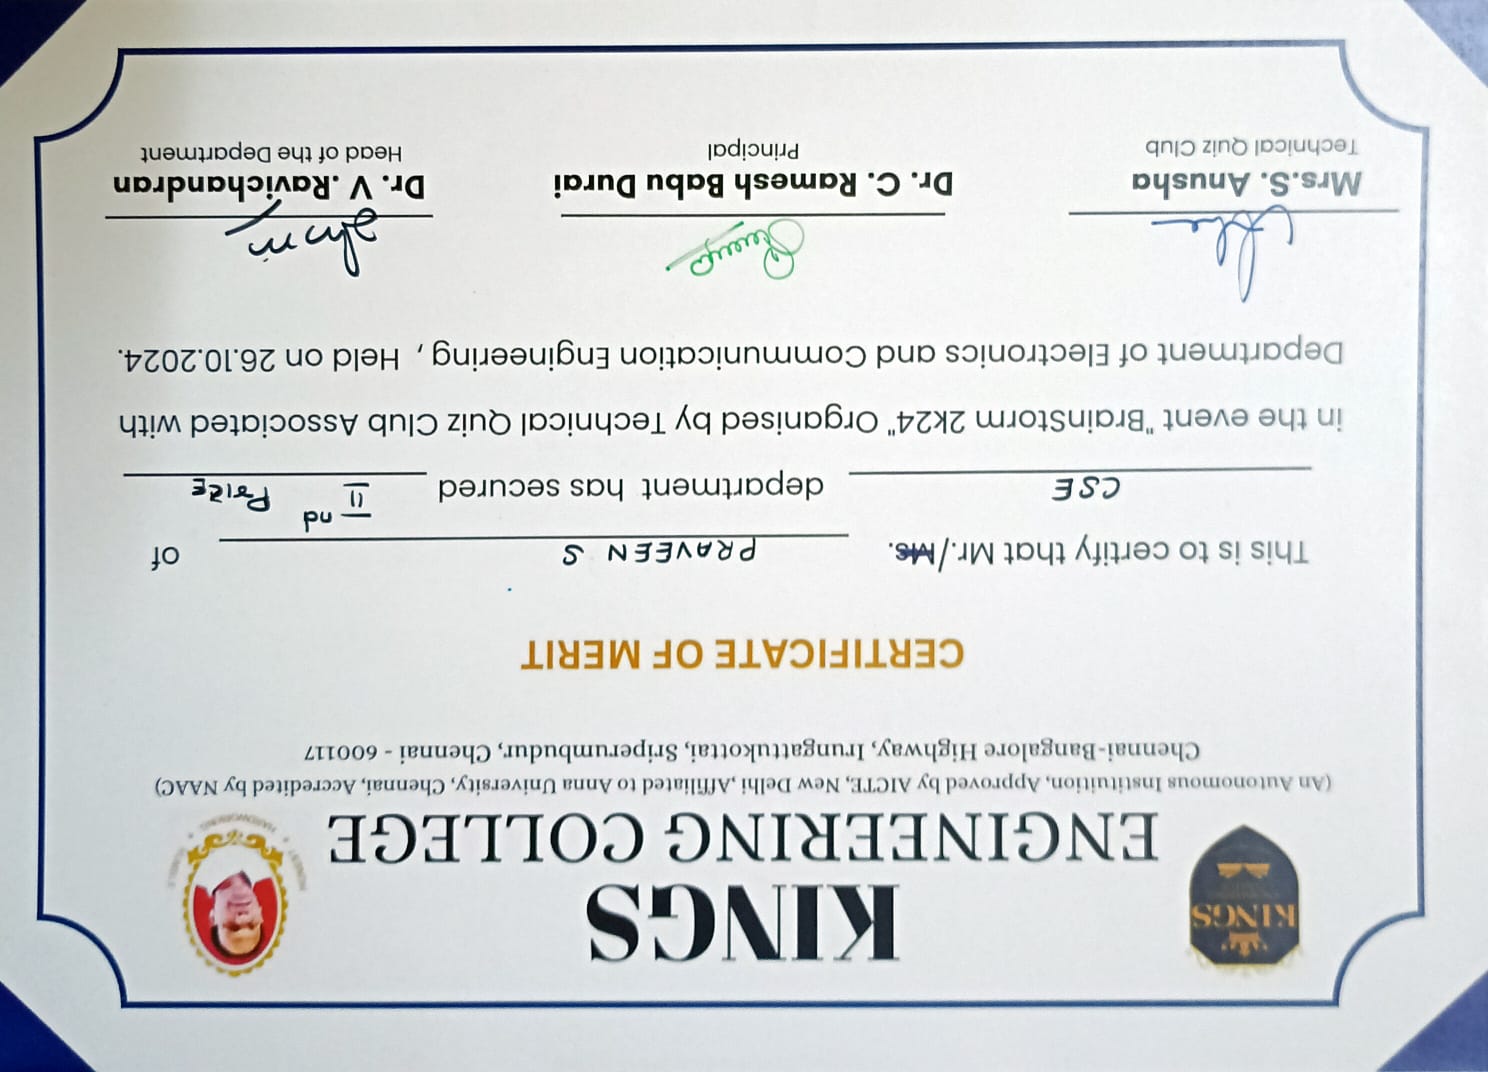 KINGS
KINGS
ENGINEERING COLLEGE
(An Autonomous Instituition, Approved by AICTE, New Delhi ,Affiliated to Anna University, Chennai, Accredited by NAAC)
Chennai-Bangalore Highway, Irungattukottai, Sriperumbudur, Chennai - 600117
HONEST • HARDWORKING • HUMBLE
CERTIFICATE OF MERIT
This is to certify that Mr./Ms. PRAVEEN S of
CSE department has secured II nd Prize
in the event "BrainStorm 2k24" Organised by Technical Quiz Club Associated with
Department of Electronics and Communication Engineering , Held on 26.10.2024.
Mrs.S. Anusha
Technical Quiz Club
Dr. C. Ramesh Babu Durai
Principal
Dr. V .Ravichandran
Head of the Department